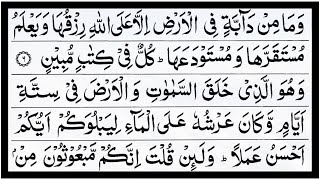 وَمَا مِنْ دَآبَّةٍ فِي الْاَرْضِ اِلَّا عَلَى اللّٰهِ رِزْقُهَا وَيَعْلَمُ
مُسْتَقَرَّهَا وَمُسْتَوْدَعَهَا ؕ كُلٌّ فِيْ كِتٰبٍ مُّبِيْنٍ ۶
وَهُوَ الَّذِيْ خَلَقَ السَّمٰوٰتِ وَ الْاَرْضَ فِيْ سِتَّةِ
اَيَّامٍ وَّكَانَ عَرْشُهٗ عَلَى الْمَآءِ لِيَبْلُوَكُمْ اَيُّكُمْ
اَحْسَنُ عَمَلًا ؕ وَلَئِنْ قُلْتَ اِنَّكُمْ مَّبْعُوْثُوْنَ مِنْۢ